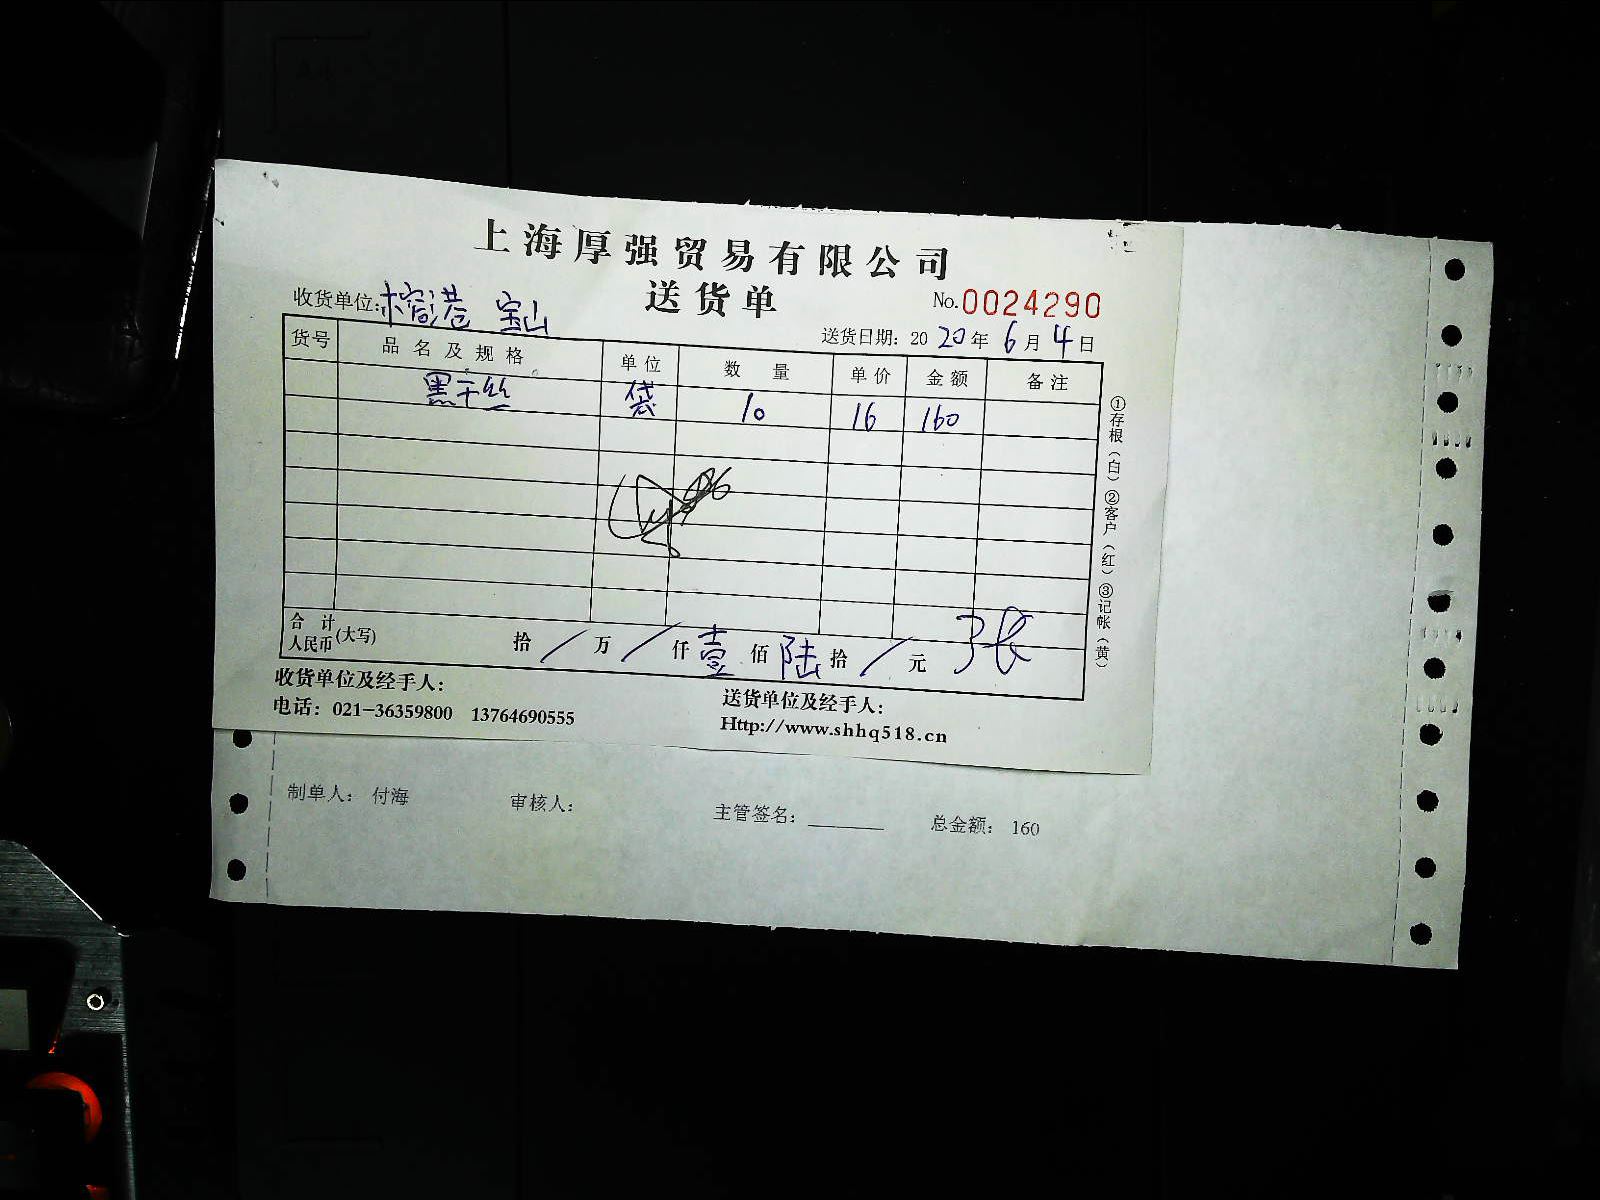 上海厚强贸易有限公司
送货单
No.0024290
收货单位:榕港 宝山
送货日期: 2020年6月4日
货号 品名及规格 单位 数量 单价 金额 备注
黑干丝 袋 10 16 160
合计人民币(大写) 拾/万/仟壹佰陆拾/元
收货单位及经手人:
送货单位及经手人:
电话: 021-36359800 13764690555
Http://www.shhq518.cn
①存根(白)②客户(红)③记帐(黄)
制单人: 付海 审核人: 主管签名: ______ 总金额: 160